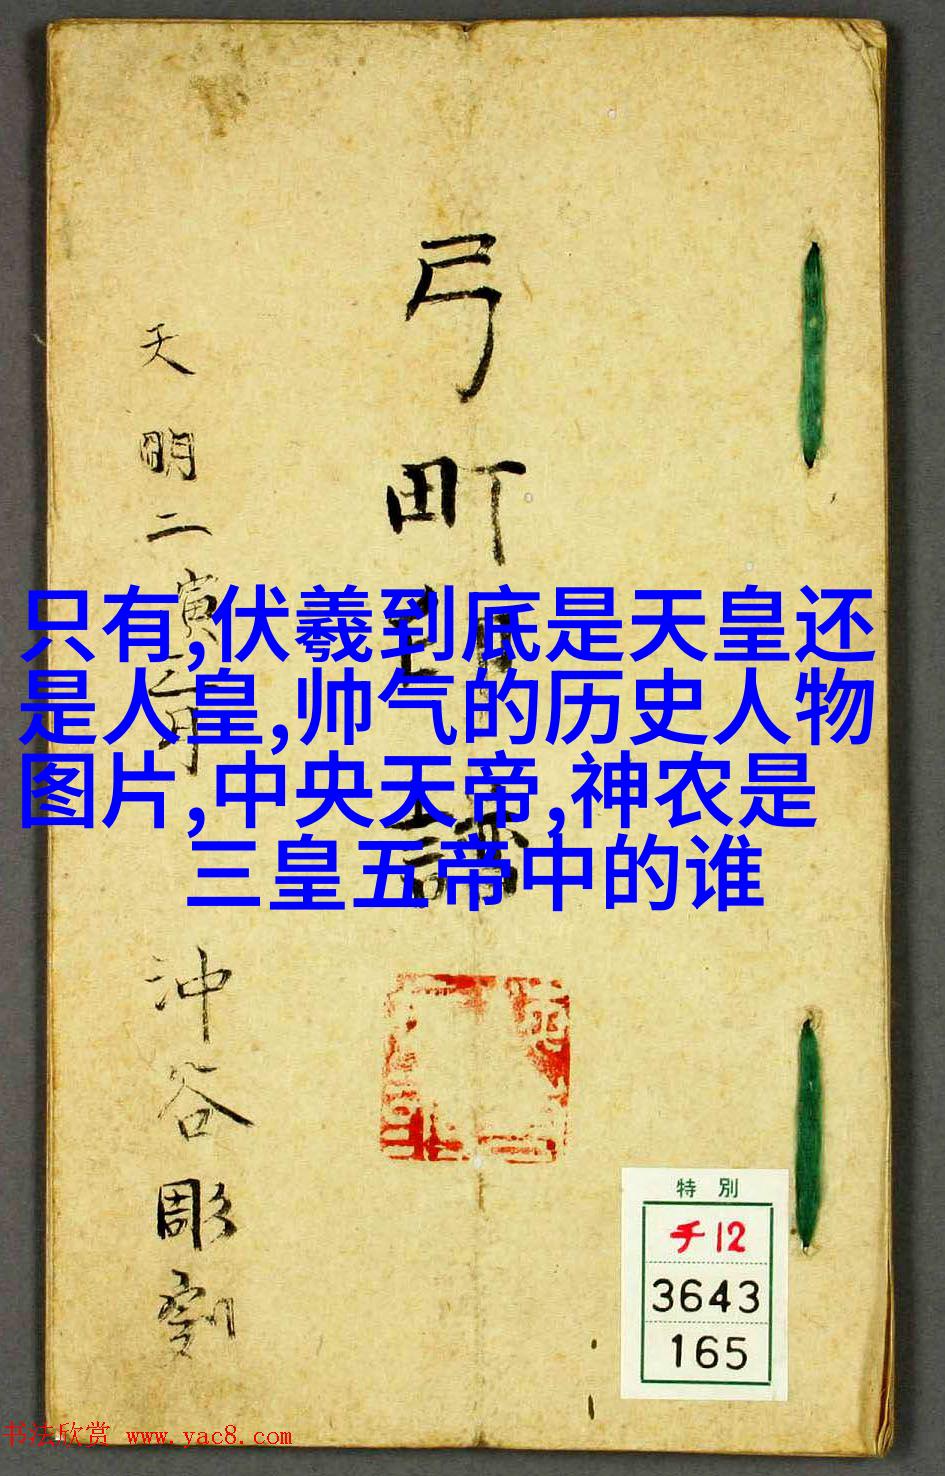 弓町
天明二寅
沖谷彫刻
只有,伏羲到底是天皇还
是人皇,帅气的历史人物
图片,中央天帝,神农是
三皇五帝中的谁
特別
チ12
3643
165
书法欣赏 www.yac8.com